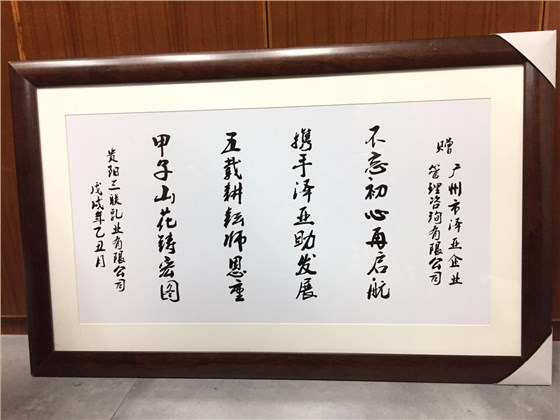 赠 广州市泽亚企业
管理咨询有限公司
不忘初心再启航
携手泽亚助发展
五载耕耘师恩重
甲子山花铸宏图
贵阳三联乳业有限公司
戊戌年乙丑月